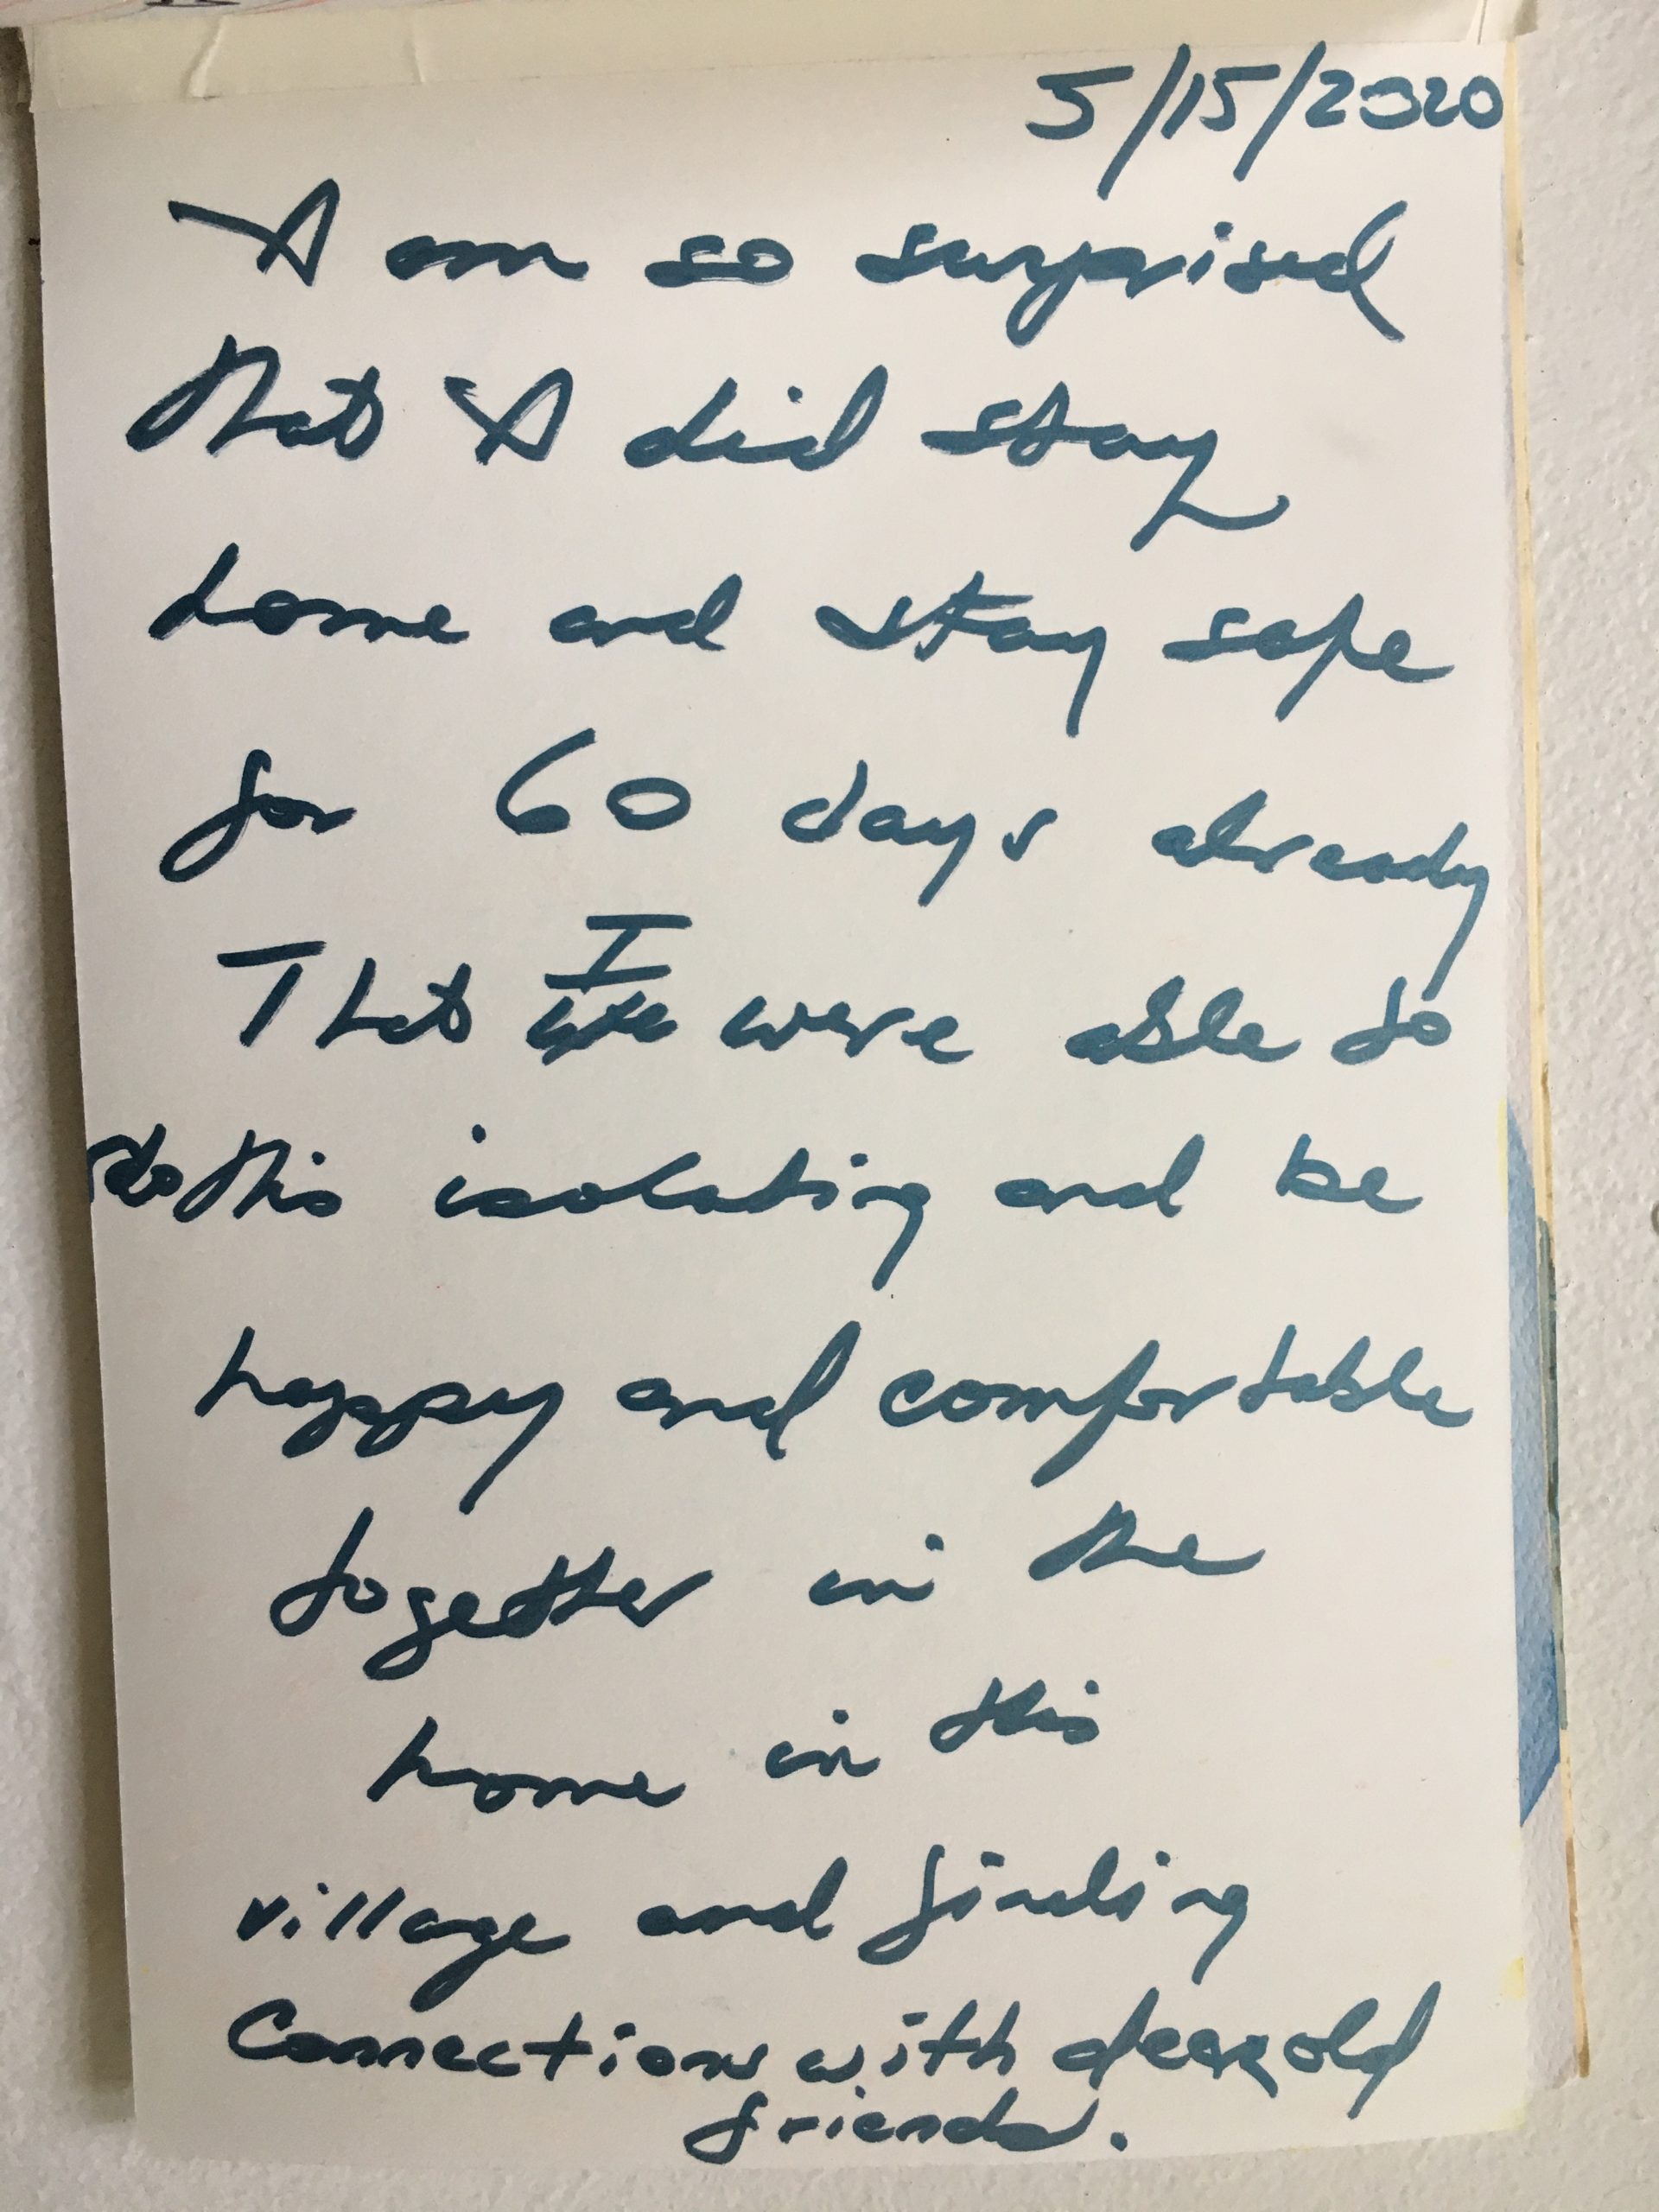 5/15/2020
I am so surprised
that I did stay
home and stay safe
for 60 days already
That I were able to
do this isolating and be
happy and comfortable
together in the
home in this
village and finding
Connections with dear old
friends.